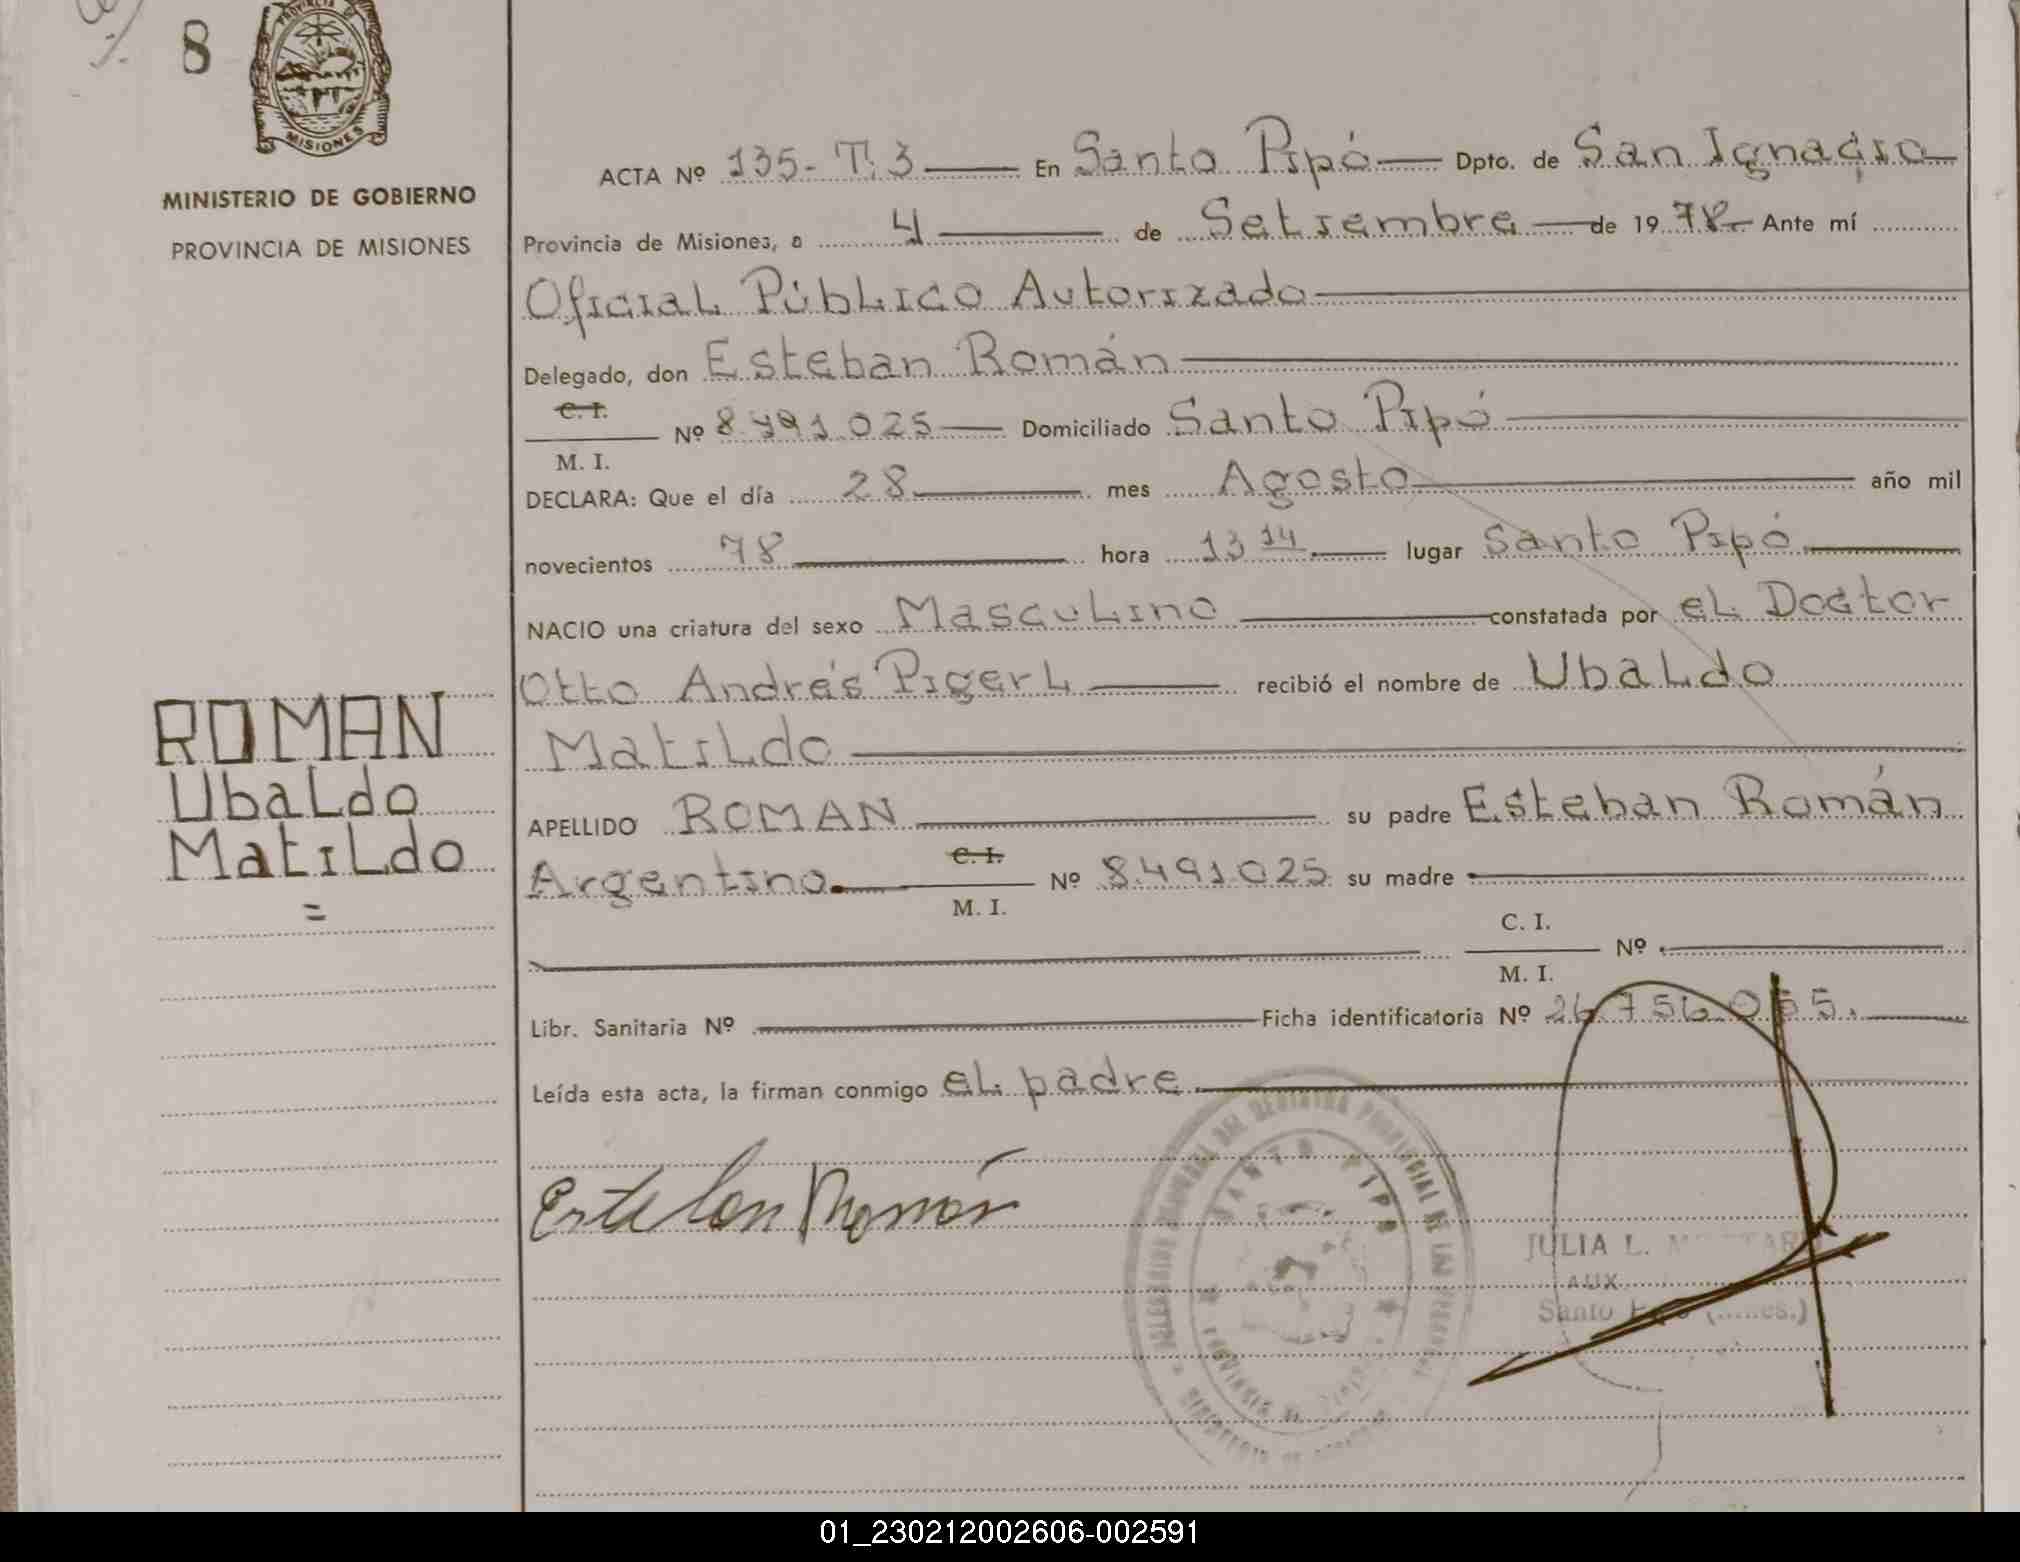 8
PROVINCIA DE
MISIONES
MINISTERIO DE GOBIERNO
PROVINCIA DE MISIONES
ROMAN
Ubaldo
Matildo
=
ACTA Nº 135- T. 3 En Santo Pipó Dpto. de San Ignacio
Provincia de Misiones, a 4 de Setiembre de 1978 Ante mí
Oficial Público Autorizado
Delegado, don Esteban Román
C. I.
Nº 8.491.025 Domiciliado Santo Pipó
M. I.
DECLARA: Que el día 28 mes Agosto año mil
novecientos 78 hora 13 14 lugar Santo Pipó
NACIO una criatura del sexo Masculino constatada por el Doctor
Otto Andrés Pigerl recibió el nombre de Ubaldo
Matildo
APELLIDO ROMAN su padre Esteban Román
Argentino. C. I. Nº 8.491.025 su madre
M. I.
C. I.
Nº
M. I.
Libr. Sanitaria Nº Ficha identificatoria Nº 26.756.055.
Leída esta acta, la firman conmigo el padre
Esteban Román
DEL REGISTRO PROVINCIAL DE LAS
SANTO PIPO
JULIA L.
AUX.
Santo
01_230212002606-002591